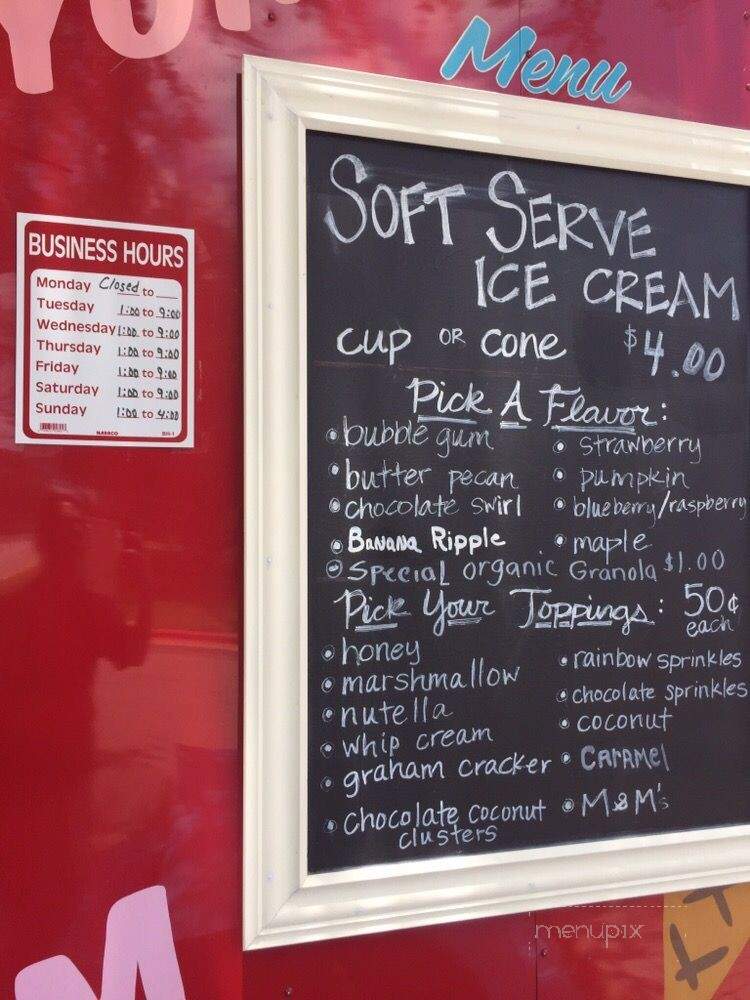 YOU
Menu
BUSINESS HOURS
Monday Closed to
Tuesday 1:00 to 9:00
Wednesday 1:00 to 9:00
Thursday 1:00 to 9:00
Friday 1:00 to 9:00
Saturday 1:00 to 9:00
Sunday 1:00 to 4:00
SOFT SERVE
ICE CREAM
cup OR cone $4.00
Pick A Flavor:
• bubble gum • strawberry
• butter pecan • pumpkin
• chocolate swirl • blueberry/raspberry
• BANANA Ripple • maple
• Special organic Granola $1.00
Pick Your Toppings: 50¢
each
• honey • rainbow sprinkles
• marshmallow • chocolate sprinkles
• nutella • coconut
• whip cream • CARAMEl
• graham cracker • M&M's
• chocolate coconut
clusters
menupix